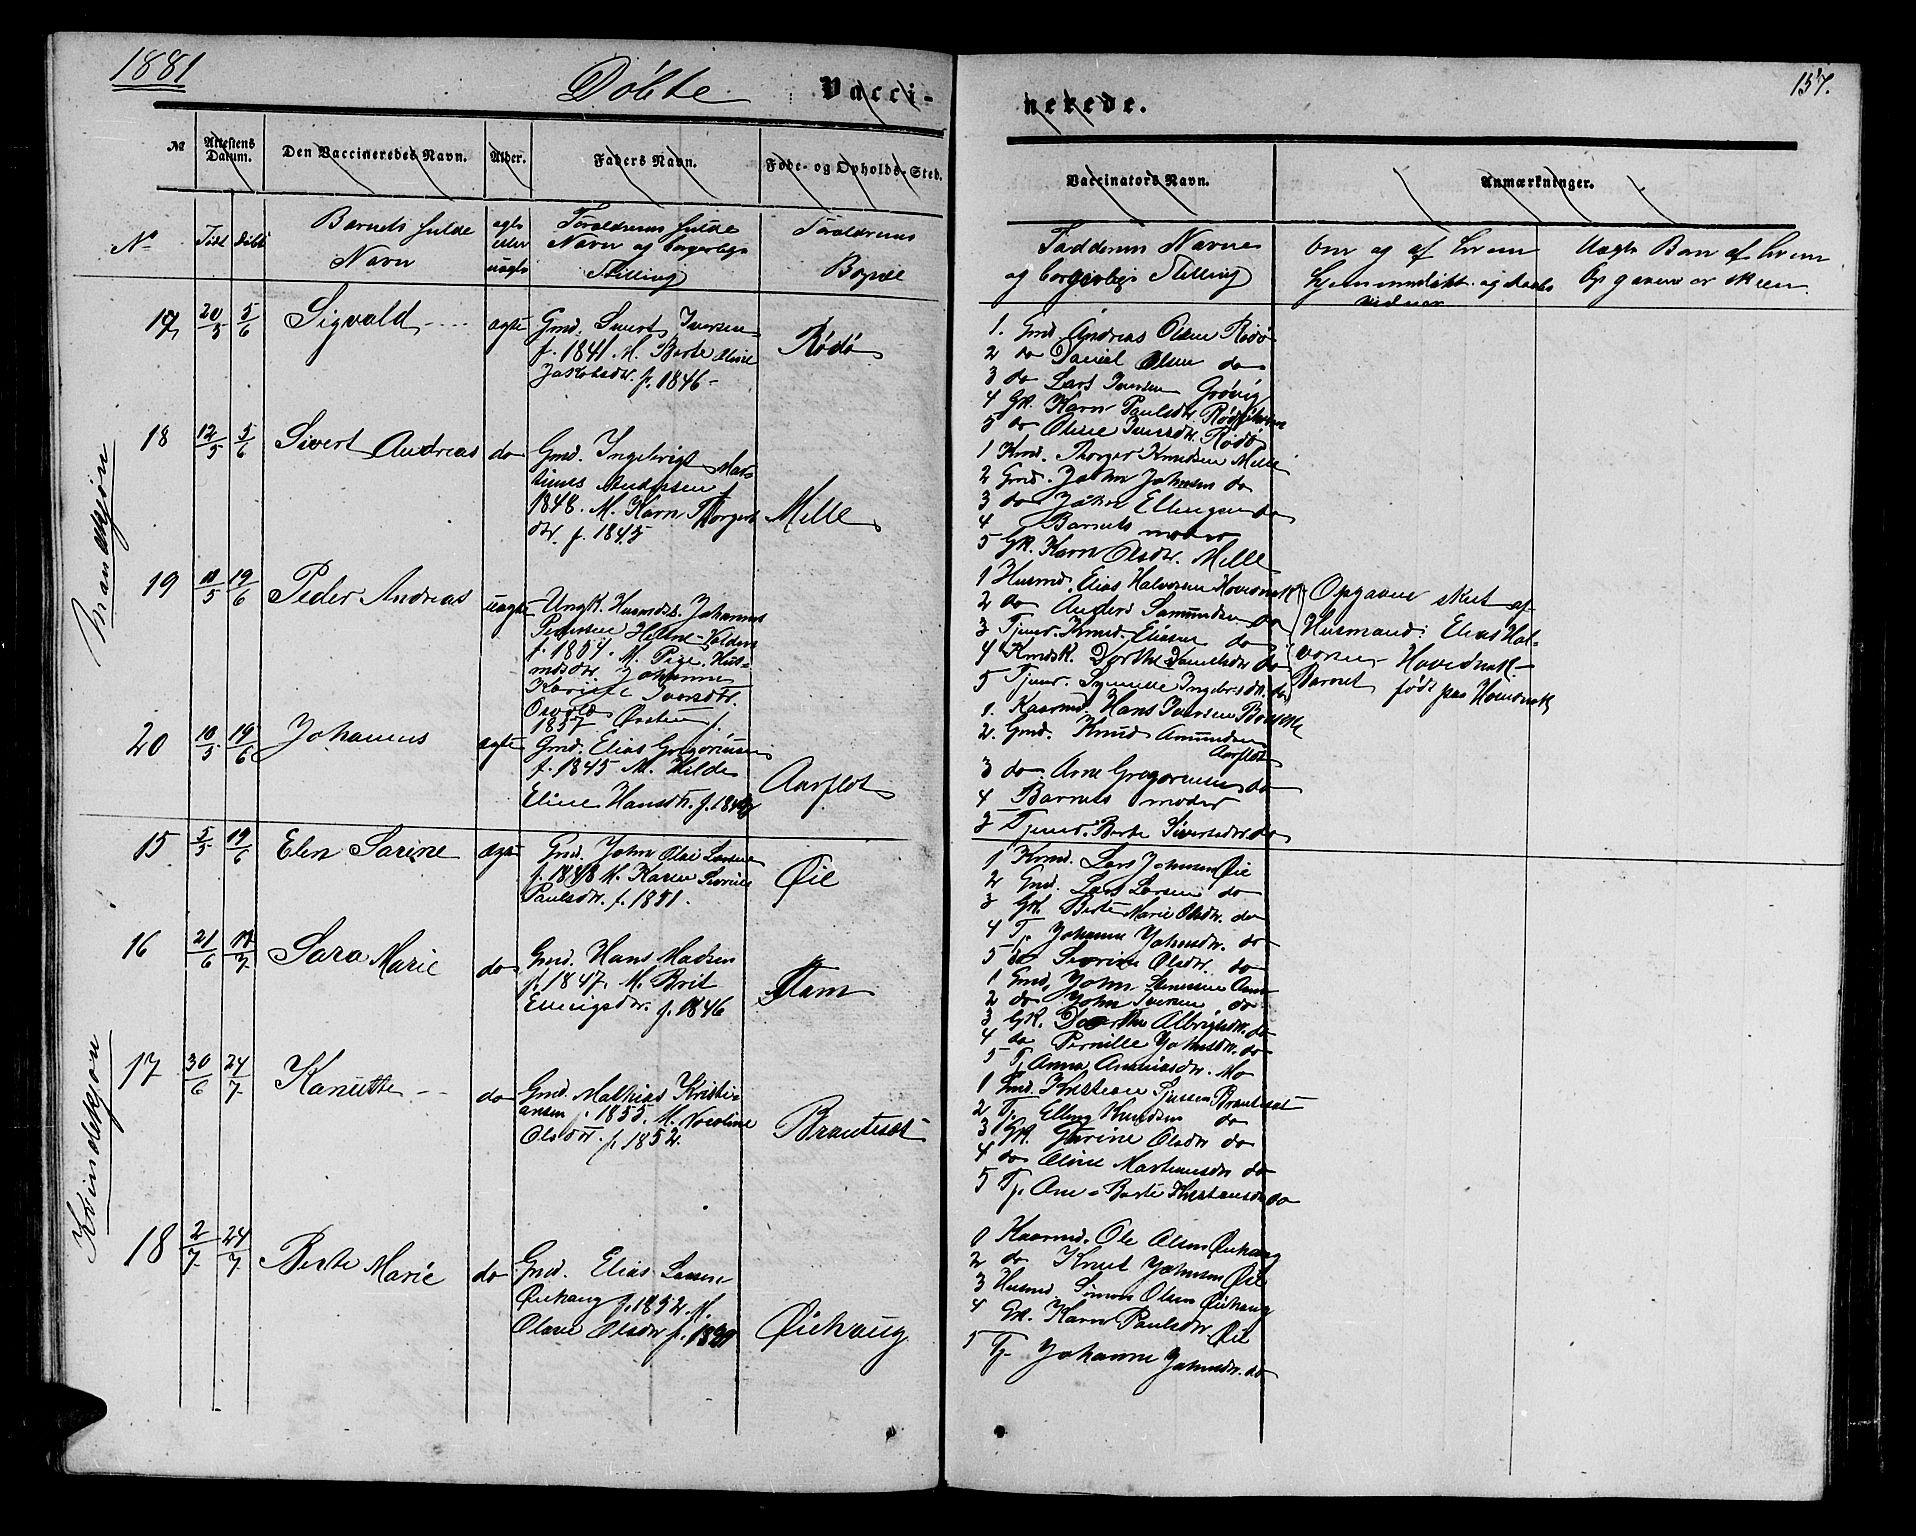 1881
157.
Døbte Vacci-
nerede.
No
Attestens Datum.
Den Vaccineredes Navn.
Alder.
Faders Navn.
Føde- og Opholds-Sted.
Vaccinators Navn.
Anmærkninger.
No
Født
døbt
Barnets fulde
Navn
ægte
eller
uægte
Forældrenes fulde
Navn og borgerlige
Stilling
Forældrenes
Bopæl
Faddernes Navne
og borgerlige Stilling
Om og af hvem
hjemmedøbt og Daabs
vidner
Uægte Barn af hvem
Opgaven er skeen
Mandkjøn
17
20/5
5/6
Sigvald
ægte
Gmd. Sivert Iversen
f. 1841. M. Berte Oline
Jakobsdtr. f. 1846
Rødø
1. Gmd Andreas Olsen Rødø
2 do Daniel Olsen do
3 do Lars Iversen Grøvig
4 Gk. Karn Paulsdtr.
5 do Oline Iversdtr. Rødø
18
12/5
5/6
Sivert Andreas
do
Gmd. Ingebrigt Mar-
tinus Andersen f.
1848. M. Karn Thorgers
dtr. f. 1845
Mille
1 Kmd. Thorger Knudsen Mille
2 Gmd. John Johnsen do
3 do John Ellingsen do
4 Barnets moder
5 Gk. Karn Olsdtr. Mille
19
5
19/6
Peder Andreas
uægte
Ungk. Husmds. Johannes
Petersen
f. 1857. M. Pige, Hus-
mdsdtr. Johanne
Karine Iversdtr.
Osvold Ørsten f.
1857
1 Husmd. Elias Halvorsen Hovednak
2 do Anders Samundsen do
3 Tjener. Knud Eliasen do
4 Kmdsk. Dorthe Danielsdtr do
5 Tjener. Synneve Ingebrigtsdtr. do
Opgaven skeet af
Husmand Elias Hal-
vorsen Hovednak.
Barnet født paa Hovednak
20
10/5
19/6
Johannes
ægte
Gmd. Elias Gregoriusen
f. 1845 M. Hilde
Eline Hansdtr. f.
Aarflot
1. Kaarmd. Hans Iversen
2. Gmd. Knud Amundsen
Aarflot
3 do. Arne Gregoriusen do
4 Barnets moder
5 Tjener. Berte Sivertsdtr. do
Kvindekjøn
15
5/5
19/6
Elen Sarine
ægte
Gmd. John Olai Larsen
f. 1848 M. Karen Sivrine
Paulsdtr. f. 1851.
Øie
1 Kmd. Lars Johnsen Øie
2 Gmd. Lars Larsen do
3 Gk. Berte Marie Olsdtr. do
4 Tj. Johanne Johnsdtr. do
5 do Sivrine Olsdtr. do
16
21/6
7
Sara Marie
do
Gmd. Hans Madsen
f. 1847. M. Brit
Ellingsdtr. f. 1846
Aam
1 Gmd. John Aam
2 do John Iversen do
3 Gk. Dorthe Albrigtsdtr. do
4 do Pernille Johnsdtr. do
5 Tj. Anna Andreasdtr. Mo
17
30/6
24/7
Kanutte
do
Gmd. Mathias Kristi-
ansen f. 1855. M. Nicoline
Olsdtr. f. 1852.
Brautesæt
1 Gmd. Kristian Brautesæt
2 Tj. Elling Knudsen do
3 Gk. Gurine Olsdtr do
4 do Oline Martinusdtr do
5 Tj. Ane-Berte Kristiansdtr do
18
2/7
24/7
Berte Marie
do
Gmd. Elias Larsen
Øiehaug f. 1852. M.
Olave Olsdtr f.
Øiehaug
Kaarmd. Ole Olsen Øiehaug
2 do Knut Johnsen Øie
3 Husmd. Simon Olsen Øiehaug
4 Gk. Karn Paulsdtr. Øie
5 Tj. Johanne Johnsdtr. do